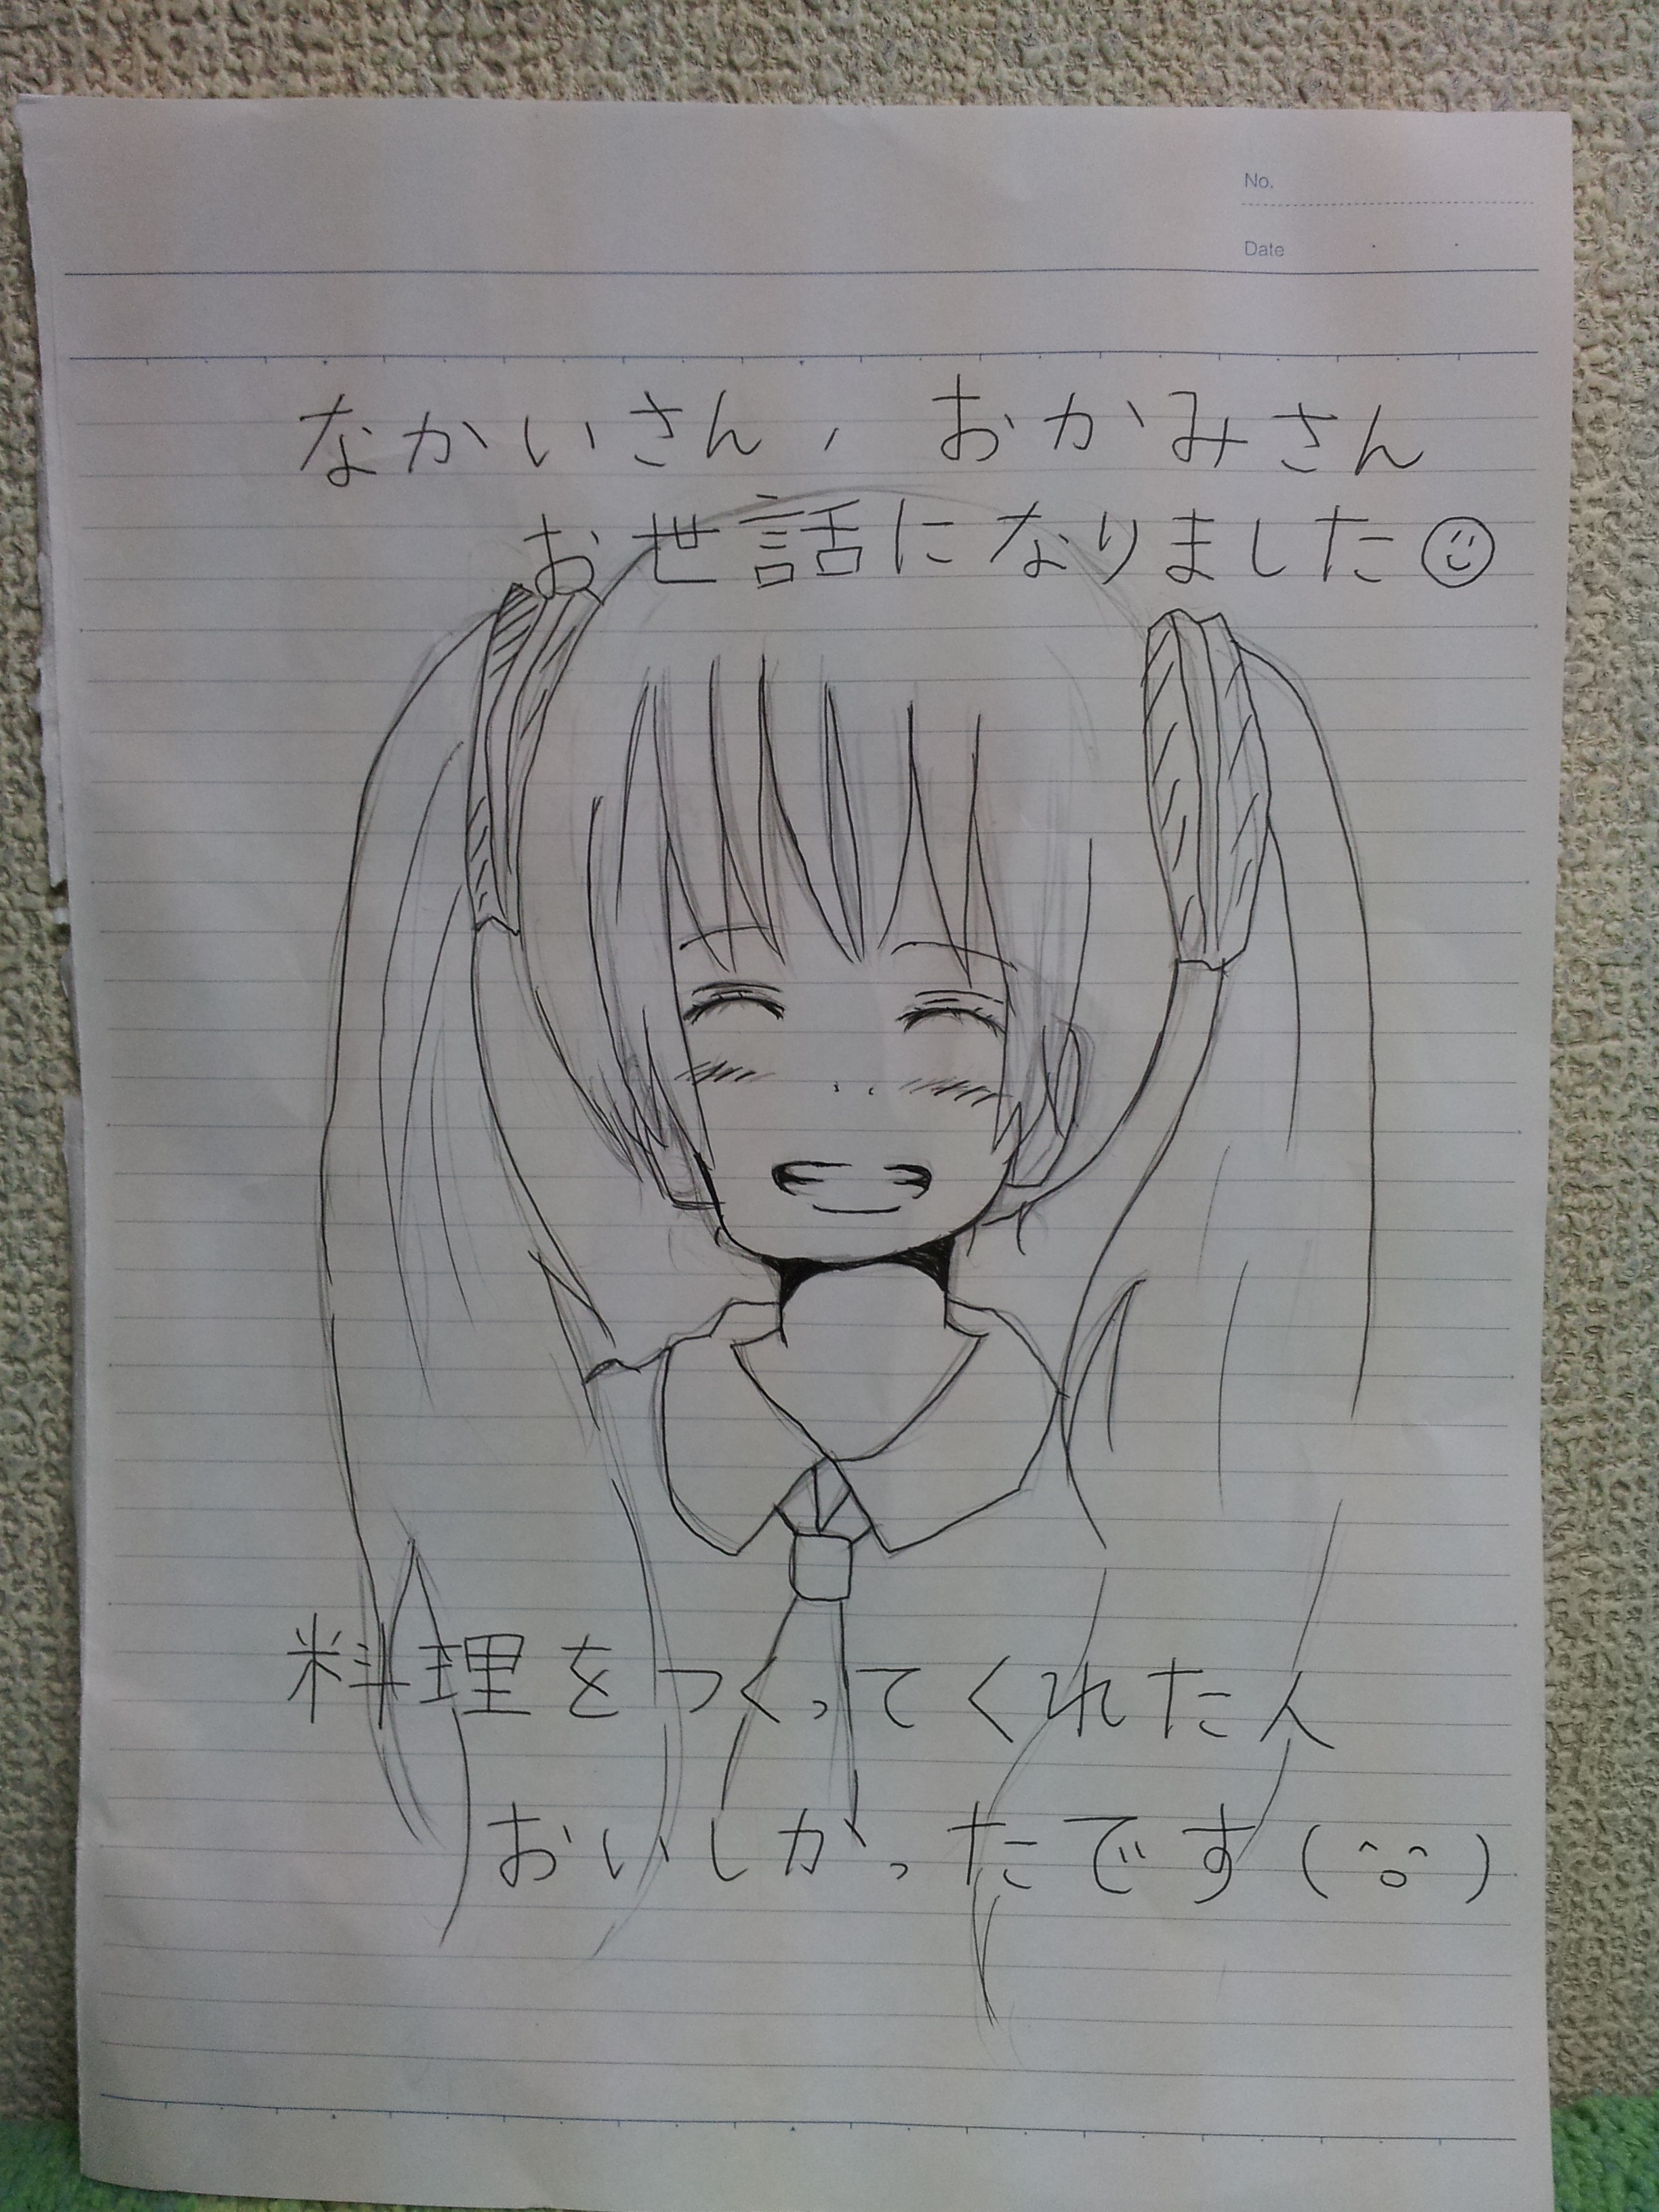 No.
Date
なかいさん, おかみさん
お世話になりました☺
料理をつくってくれた人
おいしかったです(^o^)